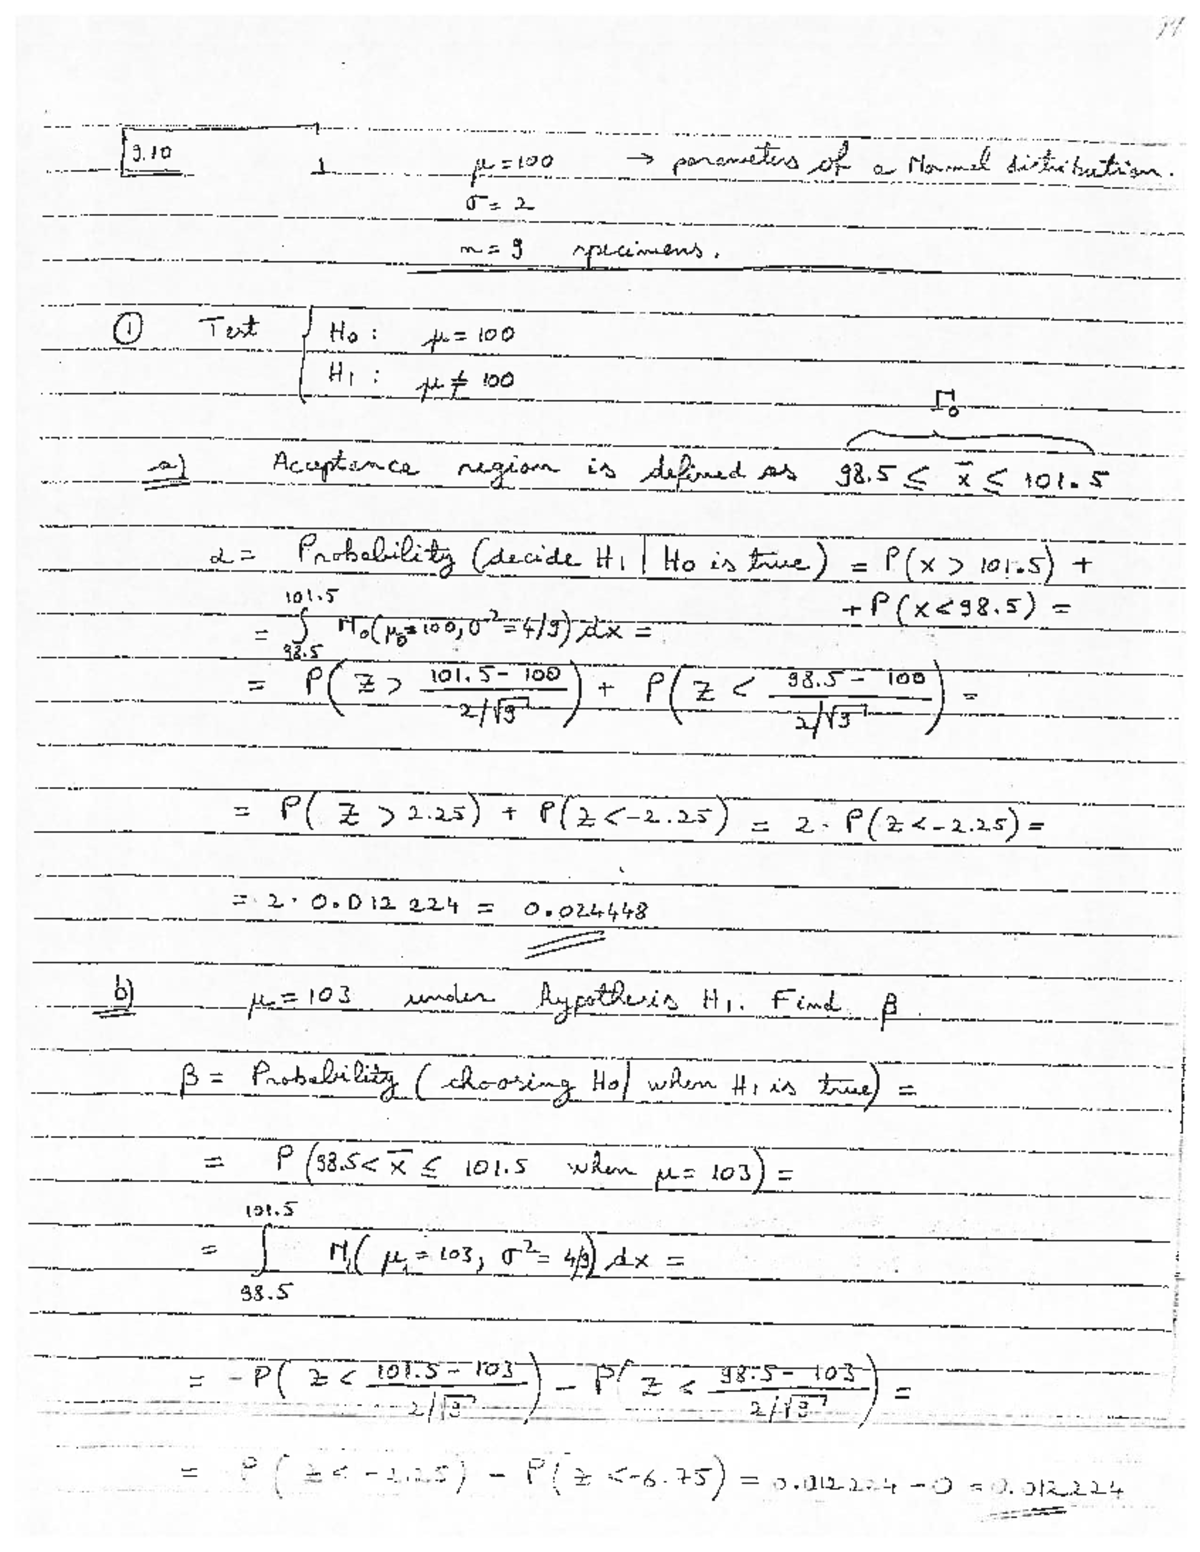 9.10 1 μ = 100 → parameters of a Normal distribution.
σ = 2
n = 9 specimens.
① Test { H0 : μ = 100
H1 : μ ≠ 100
Γ0
a) Acceptance region is defined as 98.5 ≤ x̄ ≤ 101.5
α = Probability (decide H1 | H0 is true) = P(x > 101.5) +
+ P(x < 98.5) =
= ∫_{98.5}^{101.5} N0(μ0 = 100, σ² = 4/9) dx =
= P( Z > (101.5 - 100)/(2/√9) ) + P( Z < (98.5 - 100)/(2/√9) ) =
= P( Z > 2.25) + P(Z < -2.25) = 2 · P(Z < -2.25) =
= 2 · 0.012 224 = 0.024448
b) μ = 103 under hypothesis H1. Find β
β = Probability ( choosing H0 | when H1 is true) =
= P (98.5 < x̄ ≤ 101.5 when μ = 103) =
= ∫_{98.5}^{101.5} N1( μ1 = 103, σ² = 4/9) dx =
= - P( Z < (101.5 - 103)/(2/√9) ) - P( Z < (98.5 - 103)/(2/√9) ) =
= P ( Z < -2.25) - P( Z < -6.75) = 0.012224 - 0 = 0.012224